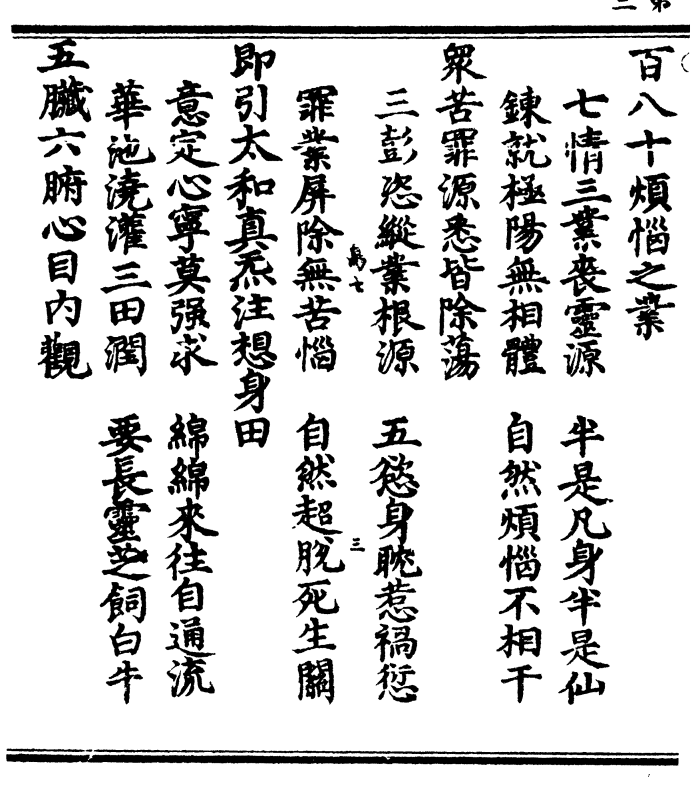 百八十煩惱之業
七情三業喪靈源　半是凡身半是仙
鍊就極陽無相體　自然煩惱不相干
衆苦罪源悉皆除蕩
三彭恣縱業根源　五慾身耽惹禍愆
罪業屏除無苦惱　自然超脫死生關
即引太和真炁注想身田
意定心寧莫强求　綿綿來往自通流
華池澆灌三田潤　要長靈芝飼白牛
五臟六腑心目内觀
三